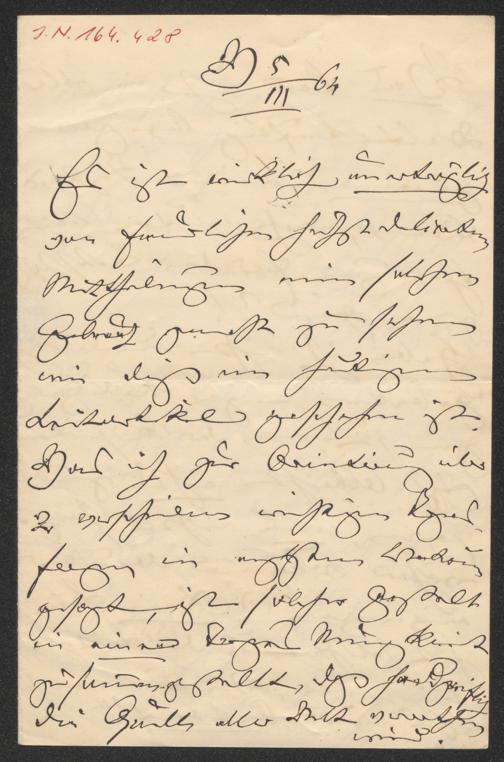 I. N. 164.428
5/III 64
Es ist wirklich unerträglich
von freundlichen höchst delikaten
Mittheilungen einen solchen
Gebrauch gemacht zu sehen
wie dies im heutigen
Leitartikel geschehen ist.
Was ich zur Orientirung über
2 verschiedene wichtigen
fragen im engsten Vertrauen
gesagt, ist solcher gestalt
in einer
zusammengestellt, daß
die Quelle aller Welt verrathen
wird.